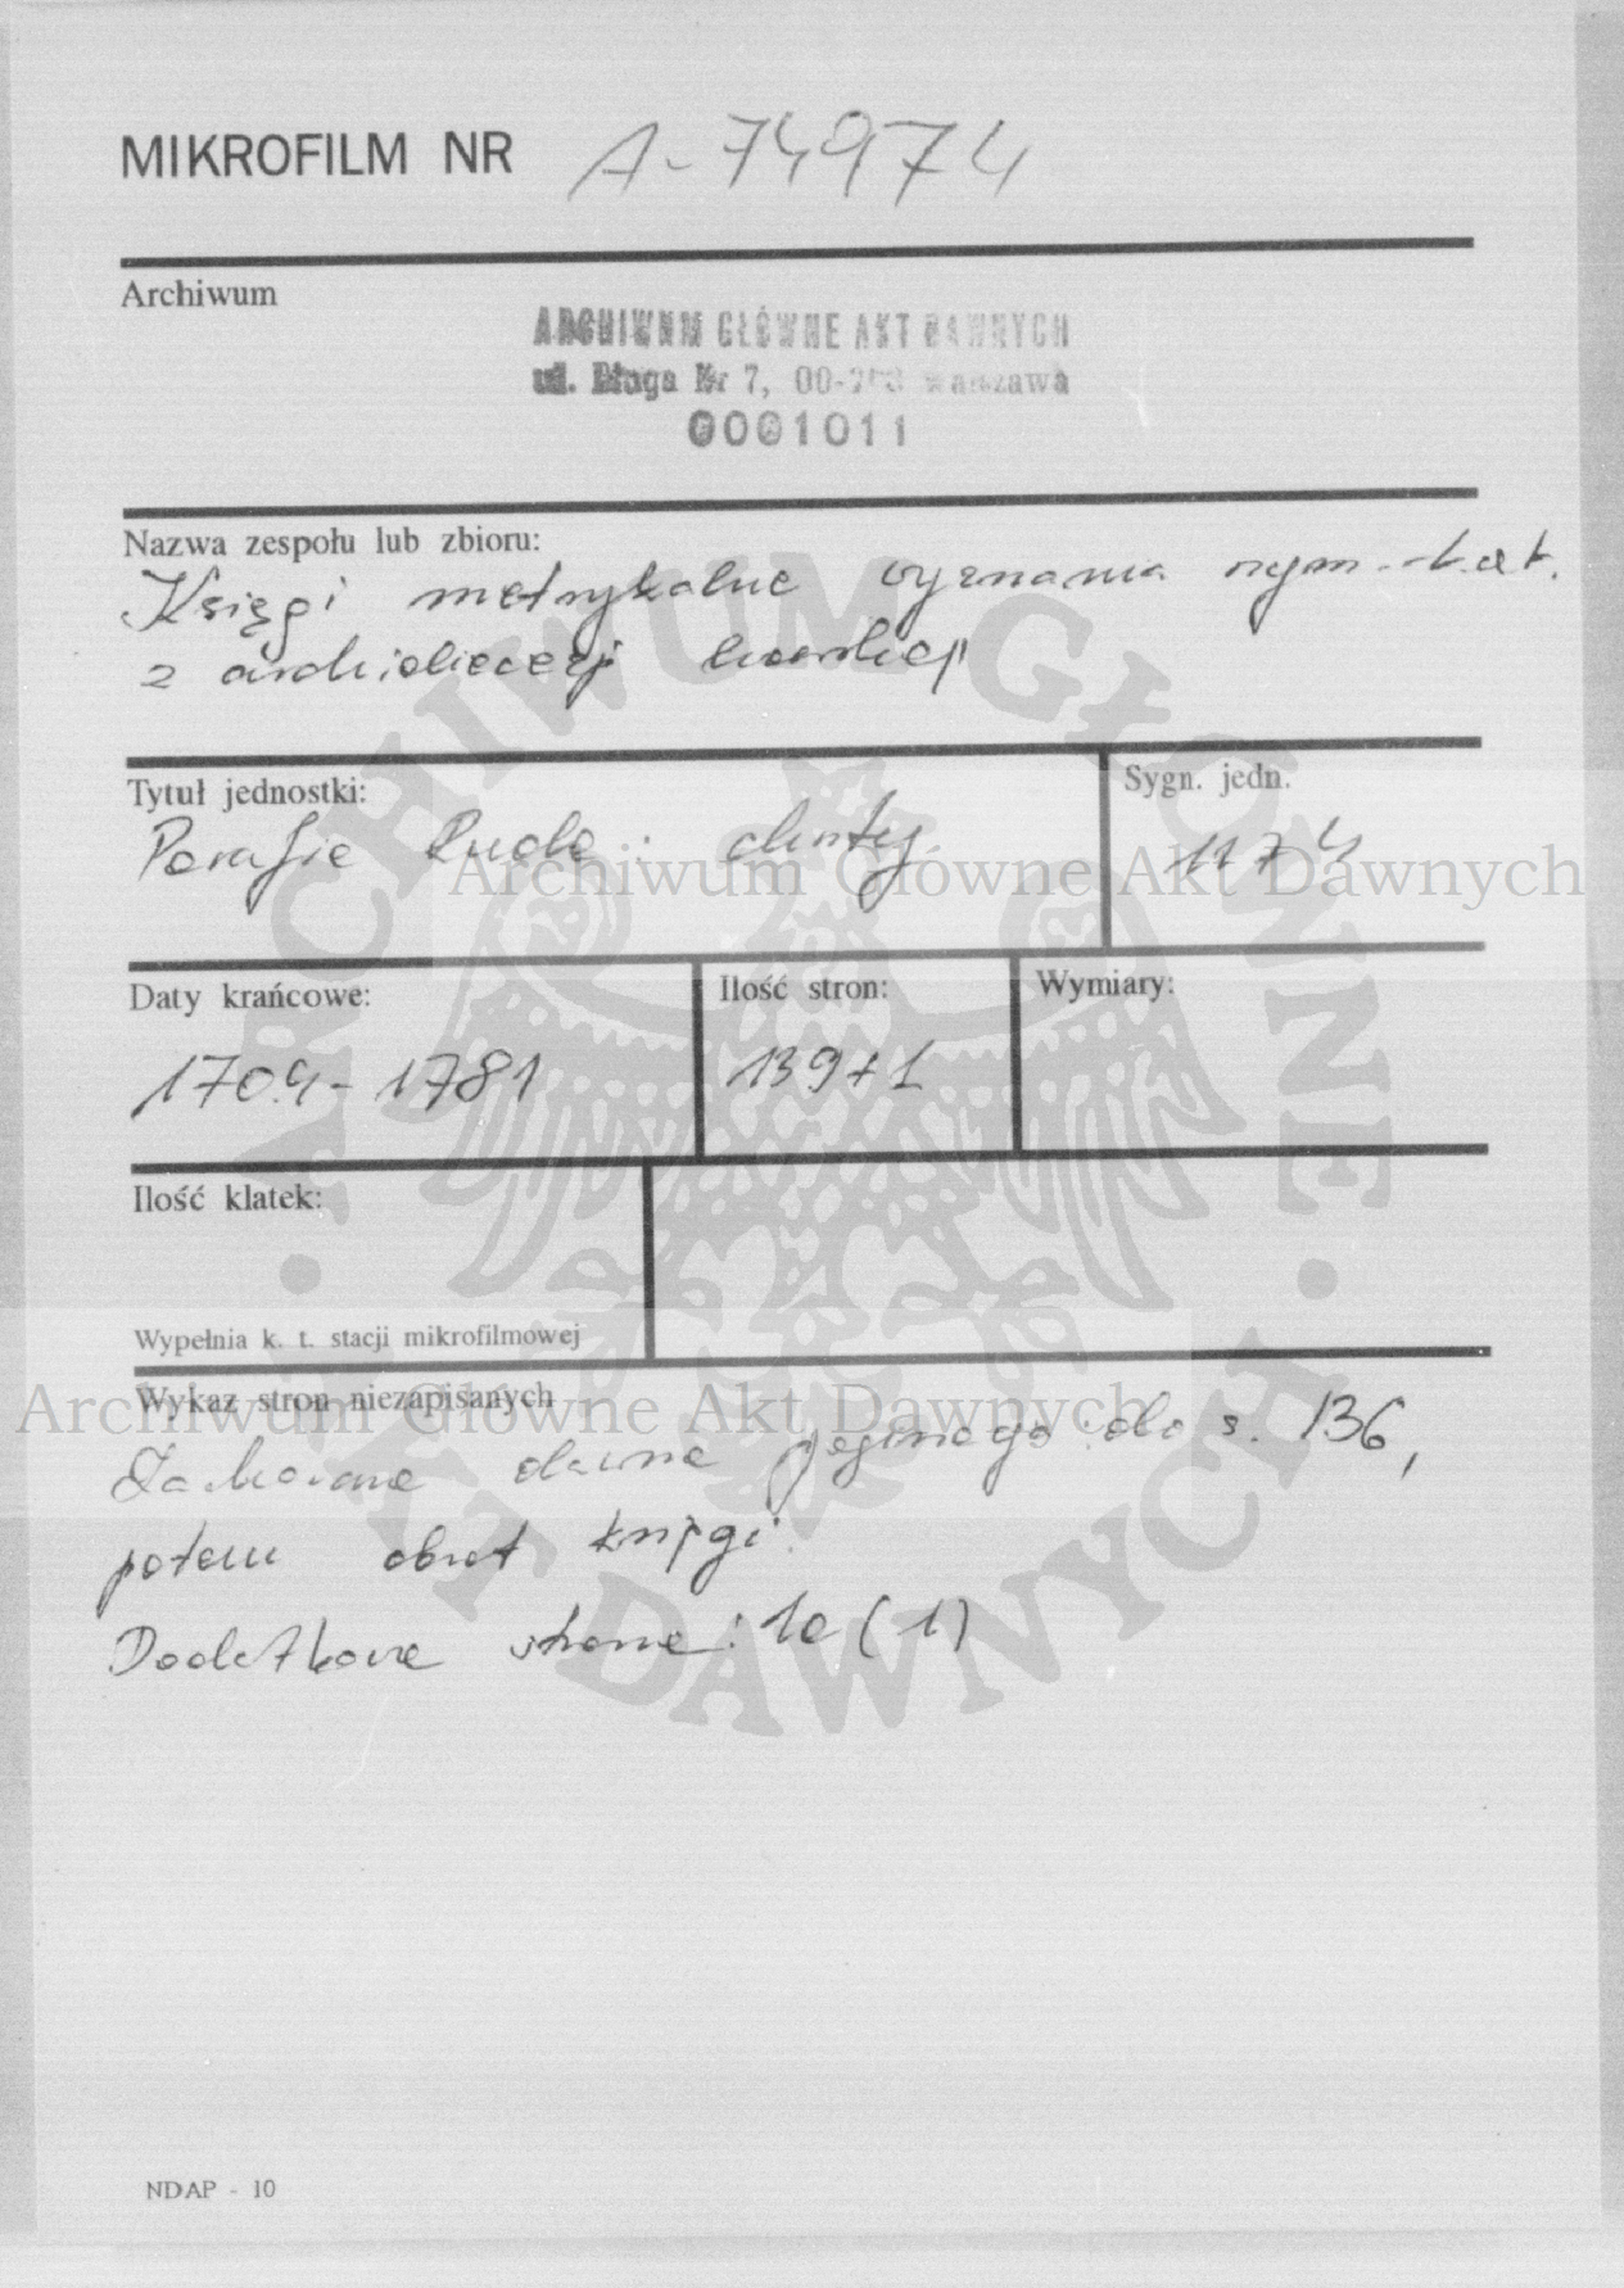 MIKROFILM NR A-74974
Archiwum
ARCHIWUM GŁÓWNE AKT DAWNYCH
ul. Długa Nr 7, 00-263 Warszawa
0001011
Nazwa zespołu lub zbioru:
Księgi metrykalne wyznania rzym.-kat.
z archidiecezji lwowskiej
Tytuł jednostki:
Sygn. jedn.
Parafia Ruda: chrzty
1174
Archiwum Główne Akt Dawnych
Daty krańcowe:
Ilość stron:
Wymiary:
1709-1781
139+1
Ilość klatek:
Wypełnia k. t. stacji mikrofilmowej
Wykaz stron niezapisanych
Archiwum Główne Akt Dawnych
Zachowana dawna paginacja do s. 136,
potem obrót księgi.
Dodatkowa strona: 1a (1)
NDAP - 10
ARCHIWUM GŁÓWNE
AKT DAWNYCH